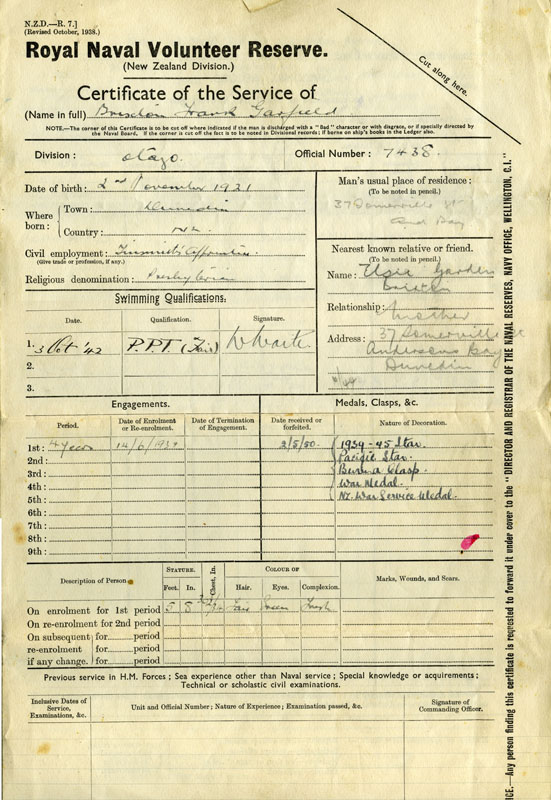 N.Z.D.—R. 7.]
(Revised October, 1938.)
Royal Naval Volunteer Reserve.
(New Zealand Division.)
Cut along here.
Certificate of the Service of
(Name in full) Frank Garfield
NOTE.—The corner of this Certificate is to be cut off where indicated if the man is discharged with a "Bad" character or with disgrace, or if specially directed by
the Naval Board. If the corner is cut off the fact is to be noted in Divisional records; if borne on ship's books in the Ledger also.
Division : Otago. Official Number : 7438.
Date of birth : 2nd November 1921
Man's usual place of residence :
(To be noted in pencil.)
37 Somerville St
And Bay
Where born : Town : Dunedin
Country : N.Z.
Civil employment :
(Give trade or profession, if any.)
Religious denomination : Presbyterian
Nearest known relative or friend.
(To be noted in pencil.)
Name : Elsie Garden
Relationship : Mother
Address : 37 Somerville St
Andersons Bay
Dunedin
Swimming Qualifications.
Date. Qualification. Signature.
1. 3 Oct '42 P.P.T. (Fair)
2.
3.
Engagements. Medals, Clasps, &c.
Period. Date of Enrolment or Re-enrolment. Date of Termination of Engagement. Date received or forfeited. Nature of Decoration.
1st : 4 years 14/6/1939 2/5/50. 1939-45 Star.
2nd : Pacific Star.
3rd : Burma Clasp
4th : War Medal.
5th : NZ. War Service Medal.
6th :
7th :
8th :
9th :
Description of Person. STATURE. Feet. In. Chest, In. COLOUR OF Hair. Eyes. Complexion. Marks, Wounds, and Scars.
On enrolment for 1st period 5 8 Fair Green Fresh
On re-enrolment for 2nd period
On subsequent for period
re-enrolment for period
if any change. for period
Previous service in H.M. Forces ; Sea experience other than Naval service ; Special knowledge or acquirements ;
Technical or scholastic civil examinations.
Inclusive Dates of Service, Examinations, &c. Unit and Official Number ; Nature of Experience ; Examination passed, &c. Signature of Commanding Officer.
ICE.—Any person finding this certificate is requested to forward it under cover to the "DIRECTOR AND REGISTRAR OF THE NAVAL RESERVES, NAVY OFFICE, WELLINGTON, C.I."